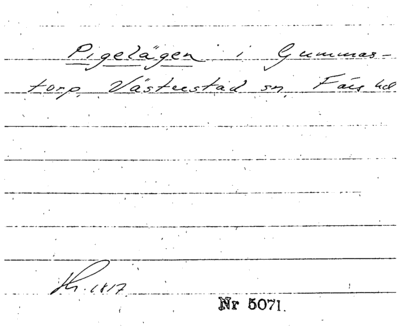 Pigelägen i Gummas-
torp, Västrestad sn, Färs hd
1817
Nr 5071.